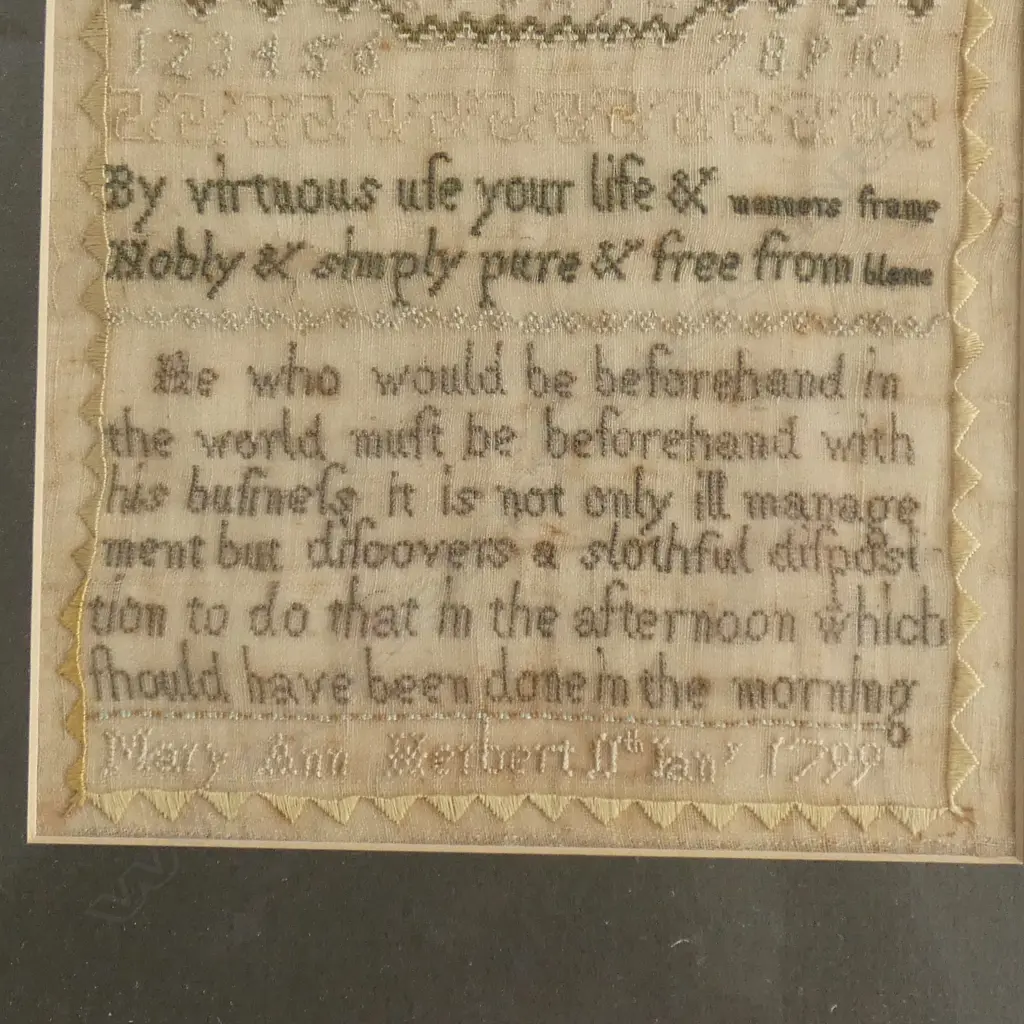 1 2 3 4 5 6 7 8 9 10
By virtuous uſe your life & manners frame
Nobly & simply pure & free from blame
He who would be beforehand in
the world muſt be beforehand with
his buſineſs it is not only ill manage
ment but diſcovers a slothful diſposi
tion to do that in the afternoon which
ſhould have been done in the morning
Mary Ann Herbert 11th Jany 1799